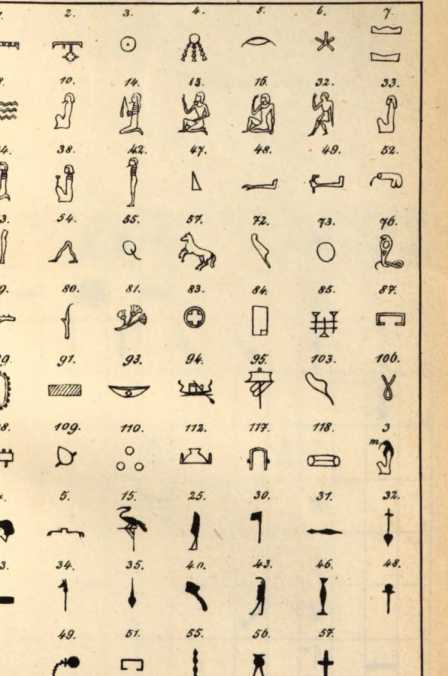 2. 3. 4. 5. 6. 7.
10. 14. 15. 16. 32. 33.
38. 42. 47. 48. 49. 52.
54. 55. 57. 72. 73. 76.
80. 81. 83. 84. 85. 87.
91. 93. 94. 95. 103. 106.
109. 110. 112. 117. 118. 3
m
5. 15. 25. 30. 31. 32.
34. 35. 40. 43. 46. 48.
49. 51. 55. 56. 57.